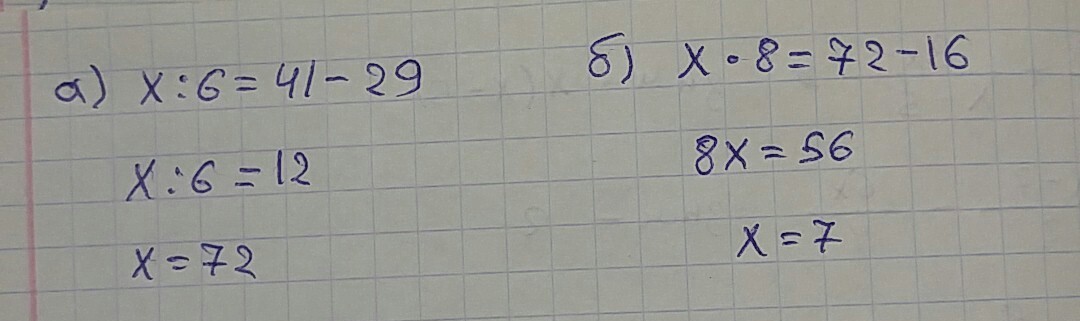 а) x : 6 = 41 - 29
x : 6 = 12
x = 72
б) x • 8 = 72 - 16
8x = 56
x = 7